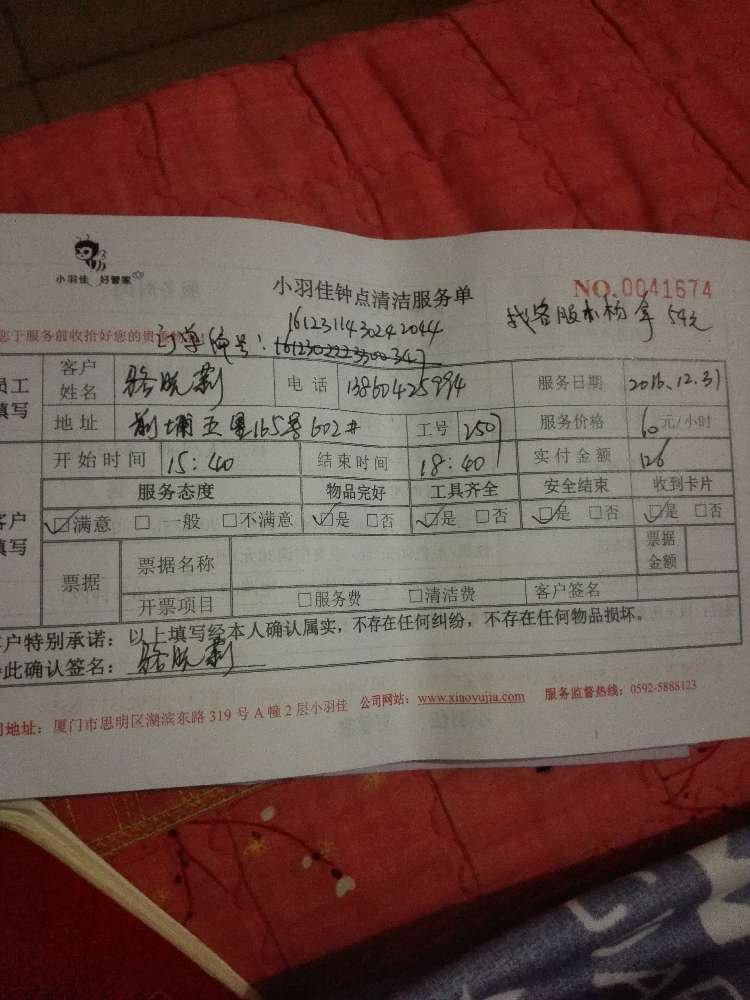 小羽佳 好管家
小羽佳钟点清洁服务单
NO.0041674
您于服务前收拾好您的贵
1612311430242044
找客服小杨拿54元
订单编号：1612302223500347
员工填写 客户姓名 骆晓莉 电话 13860425994 服务日期 2016.12.31
地址 前埔五里165号602# 工号 2507 服务价格 60元/小时
开始时间 15:40 结束时间 18:40 实付金额 126
客户填写 服务态度 物品完好 工具齐全 安全结束 收到卡片
☑满意 □一般 □不满意 ☑是 □否 ☑是 □否 ☑是 □否 ☑是 □否
票据 票据名称 票据金额
开票项目 □服务费 □清洁费 客户签名
客户特别承诺：以上填写经本人确认属实，不存在任何纠纷，不存在任何物品损坏。
此确认签名：骆晓莉
司地址：厦门市思明区湖滨东路319号A幢2层小羽佳 公司网站：www.xiaoyujia.com 服务监督热线：0592-5888123